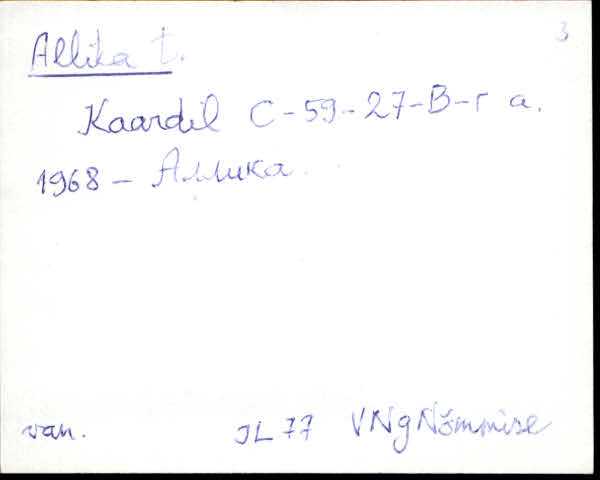 3
Allika t.
Kaardil С-59-27-В-г а.
1968 – Аллика.
van. JL 77 VNg Nõmmise